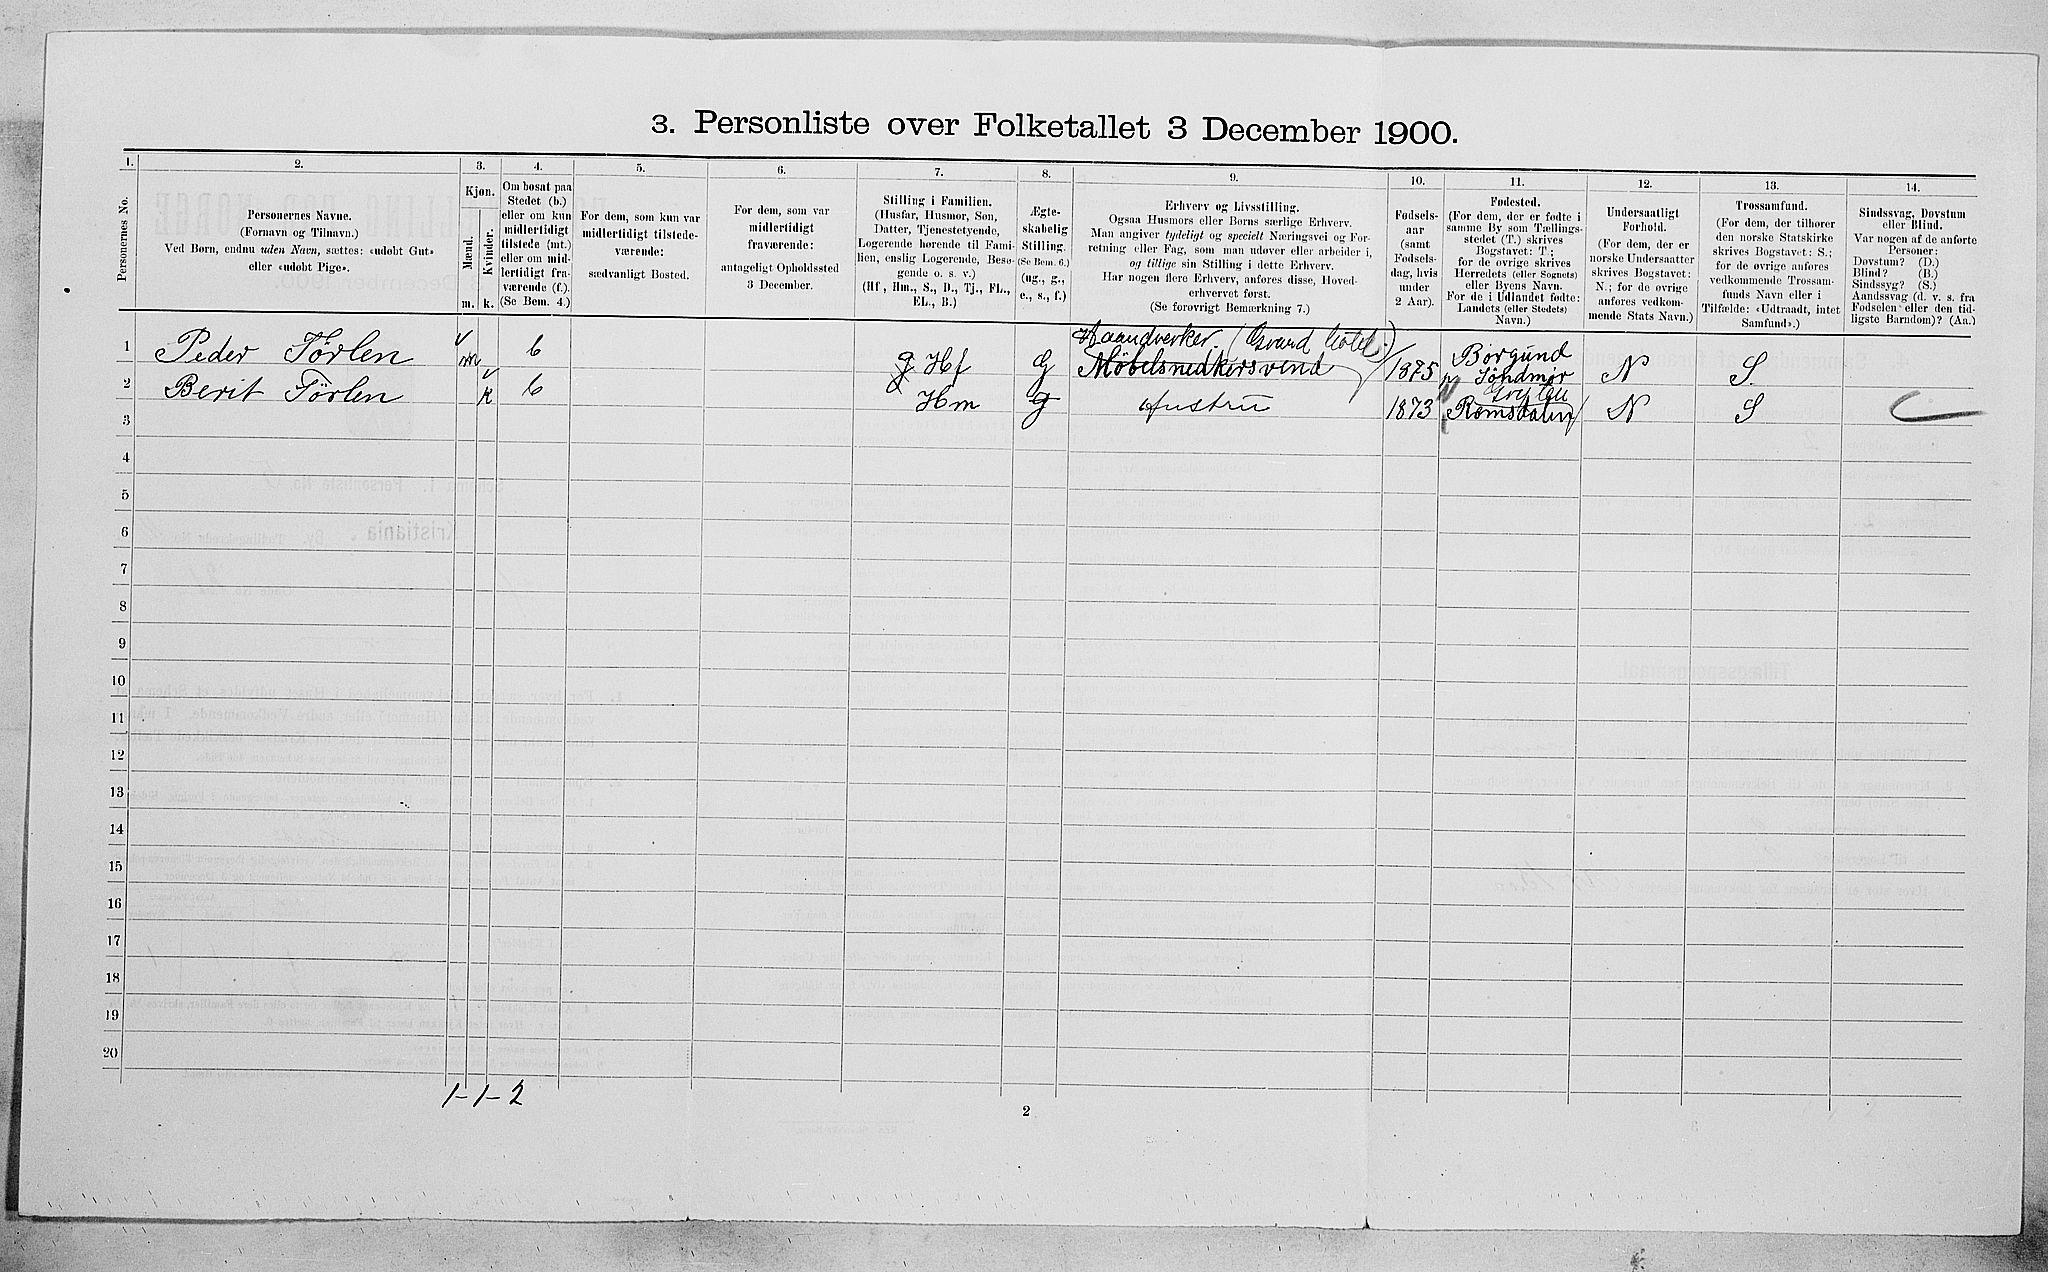 3. Personliste over Folketallet 3 December 1900.
1. 2. 3. 4. 5. 6. 7. 8. 9. 10. 11. 12. 13. 14.
Personernes No.
Personernes Navne.
(Fornavn og Tilnavn.)
Ved Børn, endnu uden Navn, sættes: «udøbt Gut»
eller «udøbt Pige».
Kjøn.
Mænd.
Kvinder.
m. k.
Om bosat paa
Stedet (b.)
eller om kun
midlertidigt
tilstede (mt.)
eller om mid-
lertidigt fra-
værende (f.).
(Se Bem. 4.)
For dem, som kun var
midlertidigt tilstede-
værende:
sædvanligt Bosted.
For dem, som var
midlertidigt
fraværende:
antageligt Opholdssted
3 December.
Stilling i Familien.
(Husfar, Husmor, Søn,
Datter, Tjenestetyende,
Logerende hørende til Fami-
lien, enslig Logerende, Besø-
gende o. s. v.)
(Hf., Hm., S., D., Tj., FL.,
EL., B.)
Ægte-
skabelig
Stilling.
(Se Bem. 6.)
(ug., g.,
e., s., f.)
Erhverv og Livsstilling.
Ogsaa Husmors eller Børns særlige Erhverv.
Man angiver tydeligt og specielt Næringsvei og For-
retning eller Fag, som man udøver eller arbeider i,
og tillige sin Stilling i dette Erhverv.
Har nogen flere Erhverv, anføres disse, Hoved-
erhvervet først.
(Se forøvrigt Bemærkning 7.)
Fødsels-
aar
(samt
Fødsels-
dag, hvis
under
2 Aar).
Fødested.
(For dem, der er fødte i
samme By som Tællings-
stedet (T.) skrives
Bogstavet: T;
for de øvrige skrives
Herredets (eller Sognets)
eller Byens Navn.
For de i Udlandet fødte:
Landets (eller Stedets)
Navn.)
Undersaatligt
Forhold.
(For dem, der er
norske Undersaatter
skrives Bogstavet:
N.; for de øvrige
anføres vedkom-
mende Stats Navn.)
Trossamfund.
(For dem, der tilhører
den norske Statskirke
skrives Bogstavet: S.;
for de øvrige anføres
vedkommende Trossam-
funds Navn eller i
Tilfælde: «Udtraadt, intet
Samfund».)
Sindssvag, Døvstum
eller Blind.
Var nogen af de anførte
Personer:
Døvstum? (D.)
Blind? (B.)
Sindssyg? (S.)
Aandssvag (d. v. s. fra
Fødselen eller den tid-
ligste Barndom)? (Aa.)
Haandverker. (Grand hotel.)
1 Peder Tørlen m b g Hf G Møbelsnedkersvend 1875 Borgund Søndmør N S.
2 Berit Tørlen k b Hm g Hustru 1873 Romsdalen N S
3
4
5
6
7
8
9
10
11
12
13
14
15
16
17
18
19
20
1-1-2
2